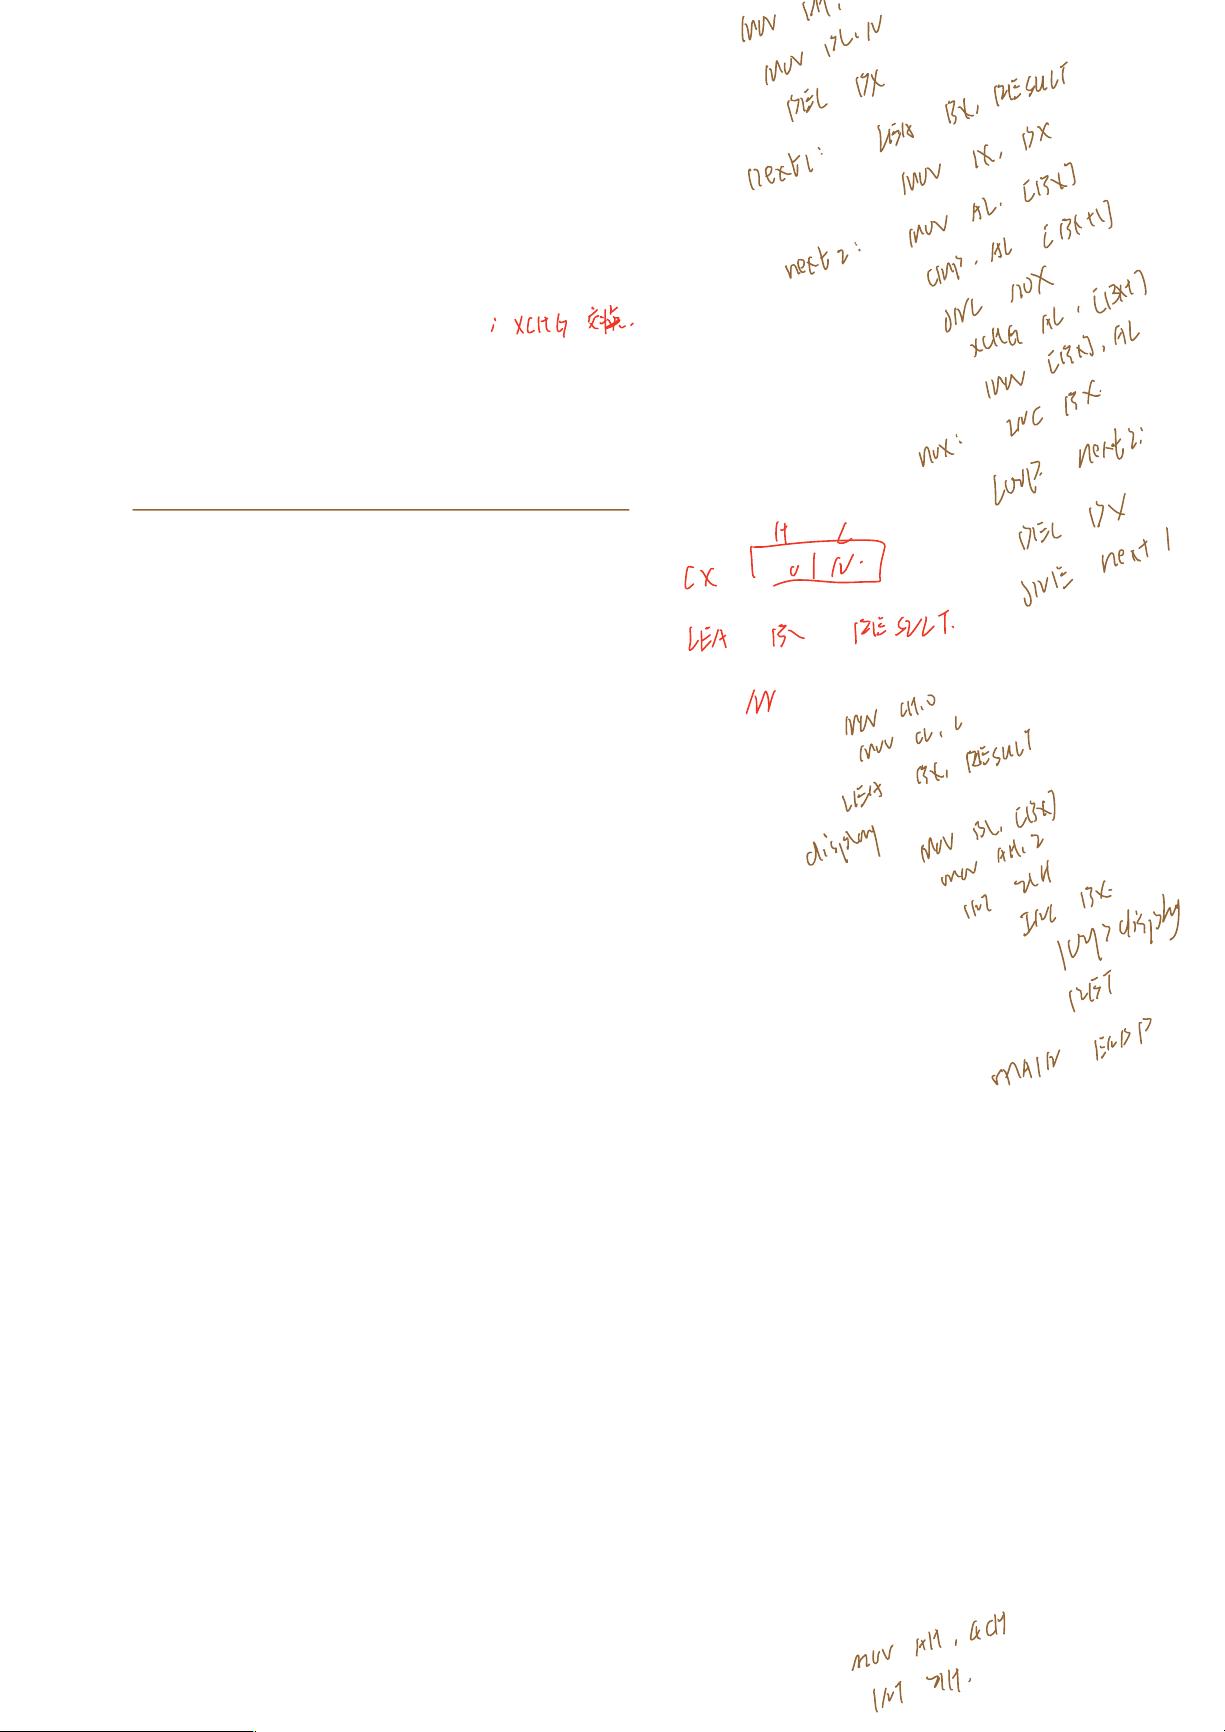 MOV
MOV BL, N
DEC BX
next1: LEA BX, RESULT
MOV CX, DX
next2: MOV AL, [BX]
CMP, AL [BX+1]
JNC nox
XCHG AL, [BX+1]
; XCHG 交换.
MOV [BX], AL
nox: INC BX.
Loop next2:
DEC DX
JNE next1
H L
CX 0 N.
LEA BX RESULT.
MOV CH, 0
MOV CL, L
LEA BX, RESULT
display MOV BL, [BX]
MOV AH, 2
INT 21H
INC BX.
loop display
RET
MAIN ENDP
MOV AH, 4CH
INT 21H.